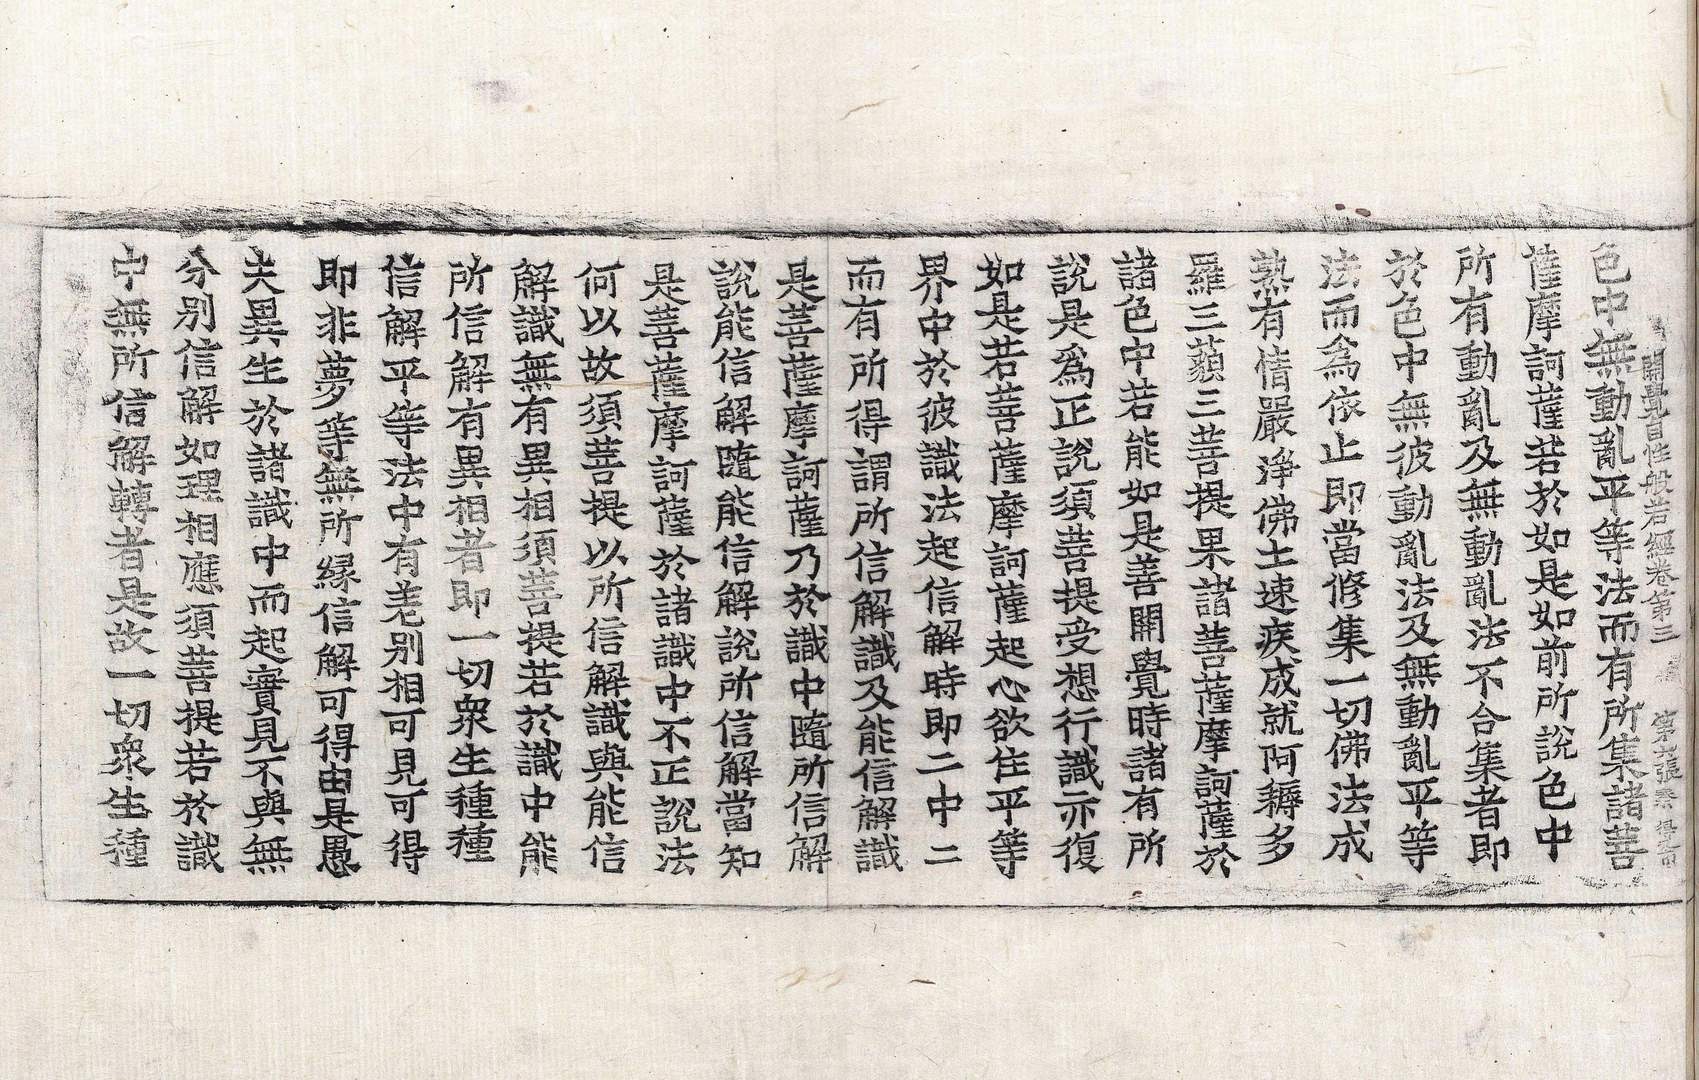 開覺自性般若經卷第三 第六張
色中無動亂平等法而有所集諸菩
薩摩訶薩若於如是如前所說色中
所有動亂及無動亂法不合集者即
於色中無彼動亂法及無動亂平等
法而為依止即當修集一切佛法成
熟有情嚴淨佛土速疾成就阿耨多
羅三藐三菩提果諸菩薩摩訶薩於
諸色中若能如是善開覺時諸有所
說是為正說須菩提受想行識亦復
如是若菩薩摩訶薩起心欲住平等
界中於彼識法起信解時即二中二
而有所得謂所信解識及能信解識
是菩薩摩訶薩乃於識中隨所信解
說能信解隨能信解說所信解當知
是菩薩摩訶薩於諸識中不正說法
何以故須菩提以所信解識與能信
解識無有異相須菩提若於識中能
所信解有異相者即一切衆生種種
信解平等法中有差别相可見可得
即非夢等無所緣信解可得由是愚
夫異生於諸識中而起實見不與無
分别信解如理相應須菩提若於識
中無所信解轉者是故一切衆生種